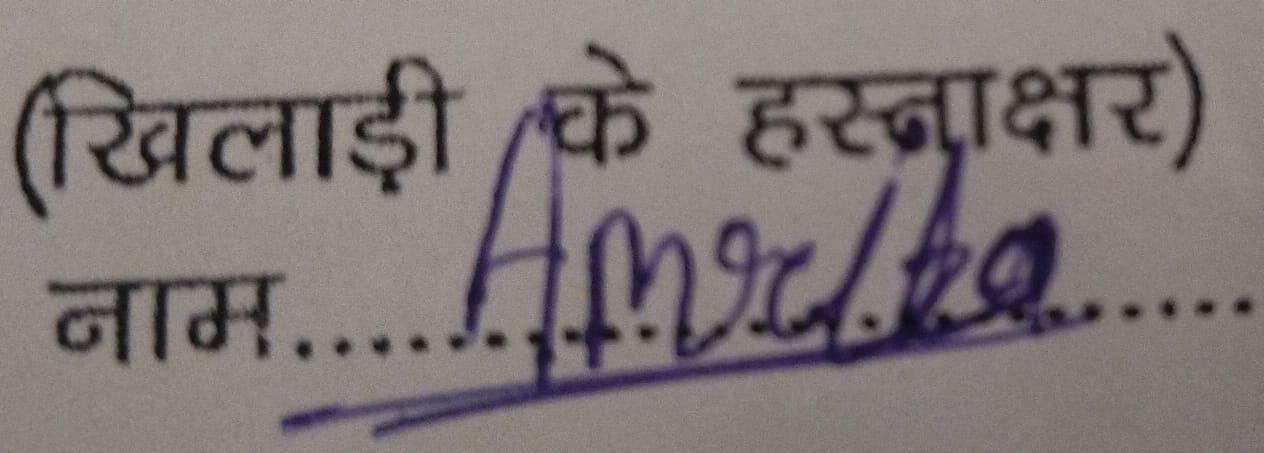 (खिलाड़ी के हस्ताक्षर)
नाम.................... Amrita